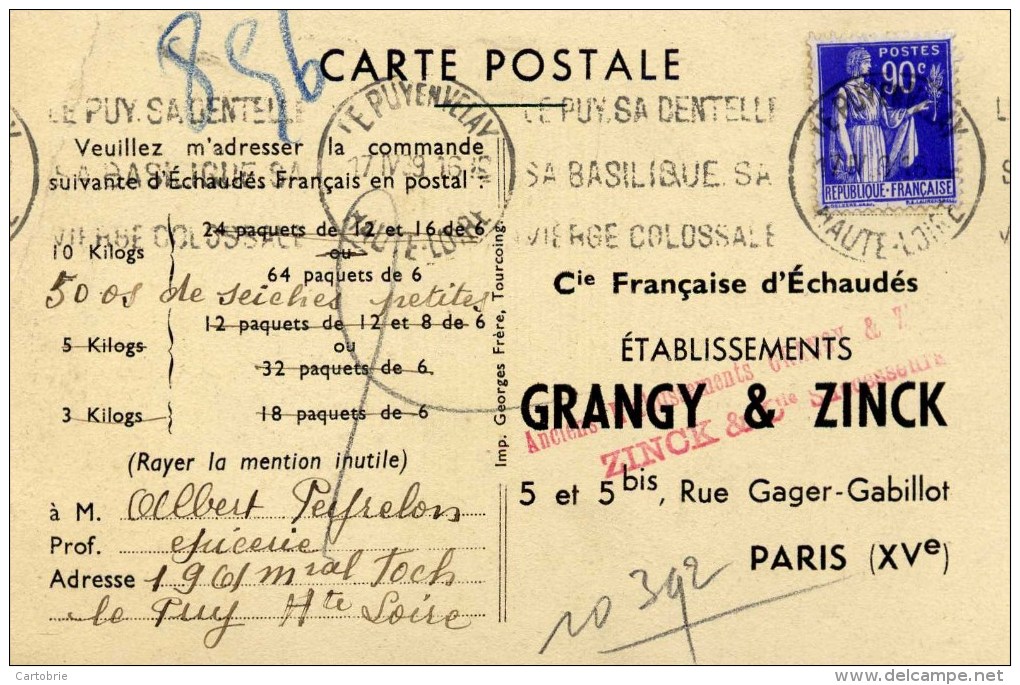 856
CARTE POSTALE
POSTES
90c
RÉPUBLIQUE-FRANÇAISE
LE PUY EN VELAY
17 IV 39 16
HAUTE-LOIRE
LE PUY. SA DENTELLE
SA BASILIQUE. SA
VIERGE COLOSSALE
LE PUY. SA DENTELLE
SA BASILIQUE. SA
VIERGE COLOSSALE
HAUTE-LOIRE
Veuillez m'adresser la commande
suivante d'Échaudés Français en postal :
24 paquets de 12 et 16 de 6
10 Kilogs ou
64 paquets de 6
50 os de seiches petites
12 paquets de 12 et 8 de 6
5 Kilogs ou
32 paquets de 6.
3 Kilogs 18 paquets de 6
(Rayer la mention inutile)
à M. Albert Peyrelon
Prof. epicerie
Adresse 19 Bd Mral Foch
le Puy Hte Loire
Imp. Georges Frère, Tourcoing.
Cie Française d'Échaudés
ÉTABLISSEMENTS
GRANGY & ZINCK
5 et 5 bis, Rue Gager-Gabillot
PARIS (XVe)
Anciens Etablissements GRANGY & Z
ZINCK & Cie Successeurs
10 392
Cartobrie
delcampe.net